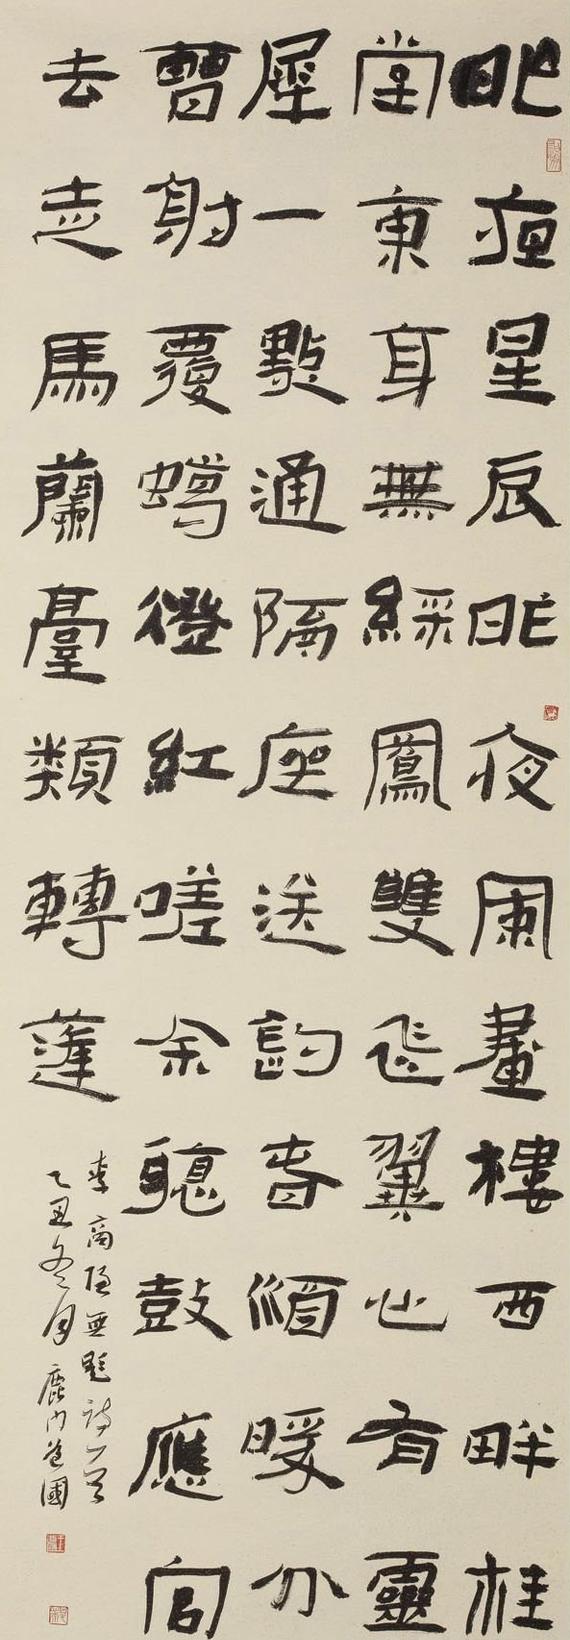 昨夜星辰昨夜風畫樓西畔桂
堂東身無綵鳳雙飛翼心有靈
犀一點通隔座送鈎春酒暖分
曹射覆蠟燈紅嗟余聽鼓應官
去走馬蘭臺類轉蓬
李商隱無題詩一首
乙丑冬月